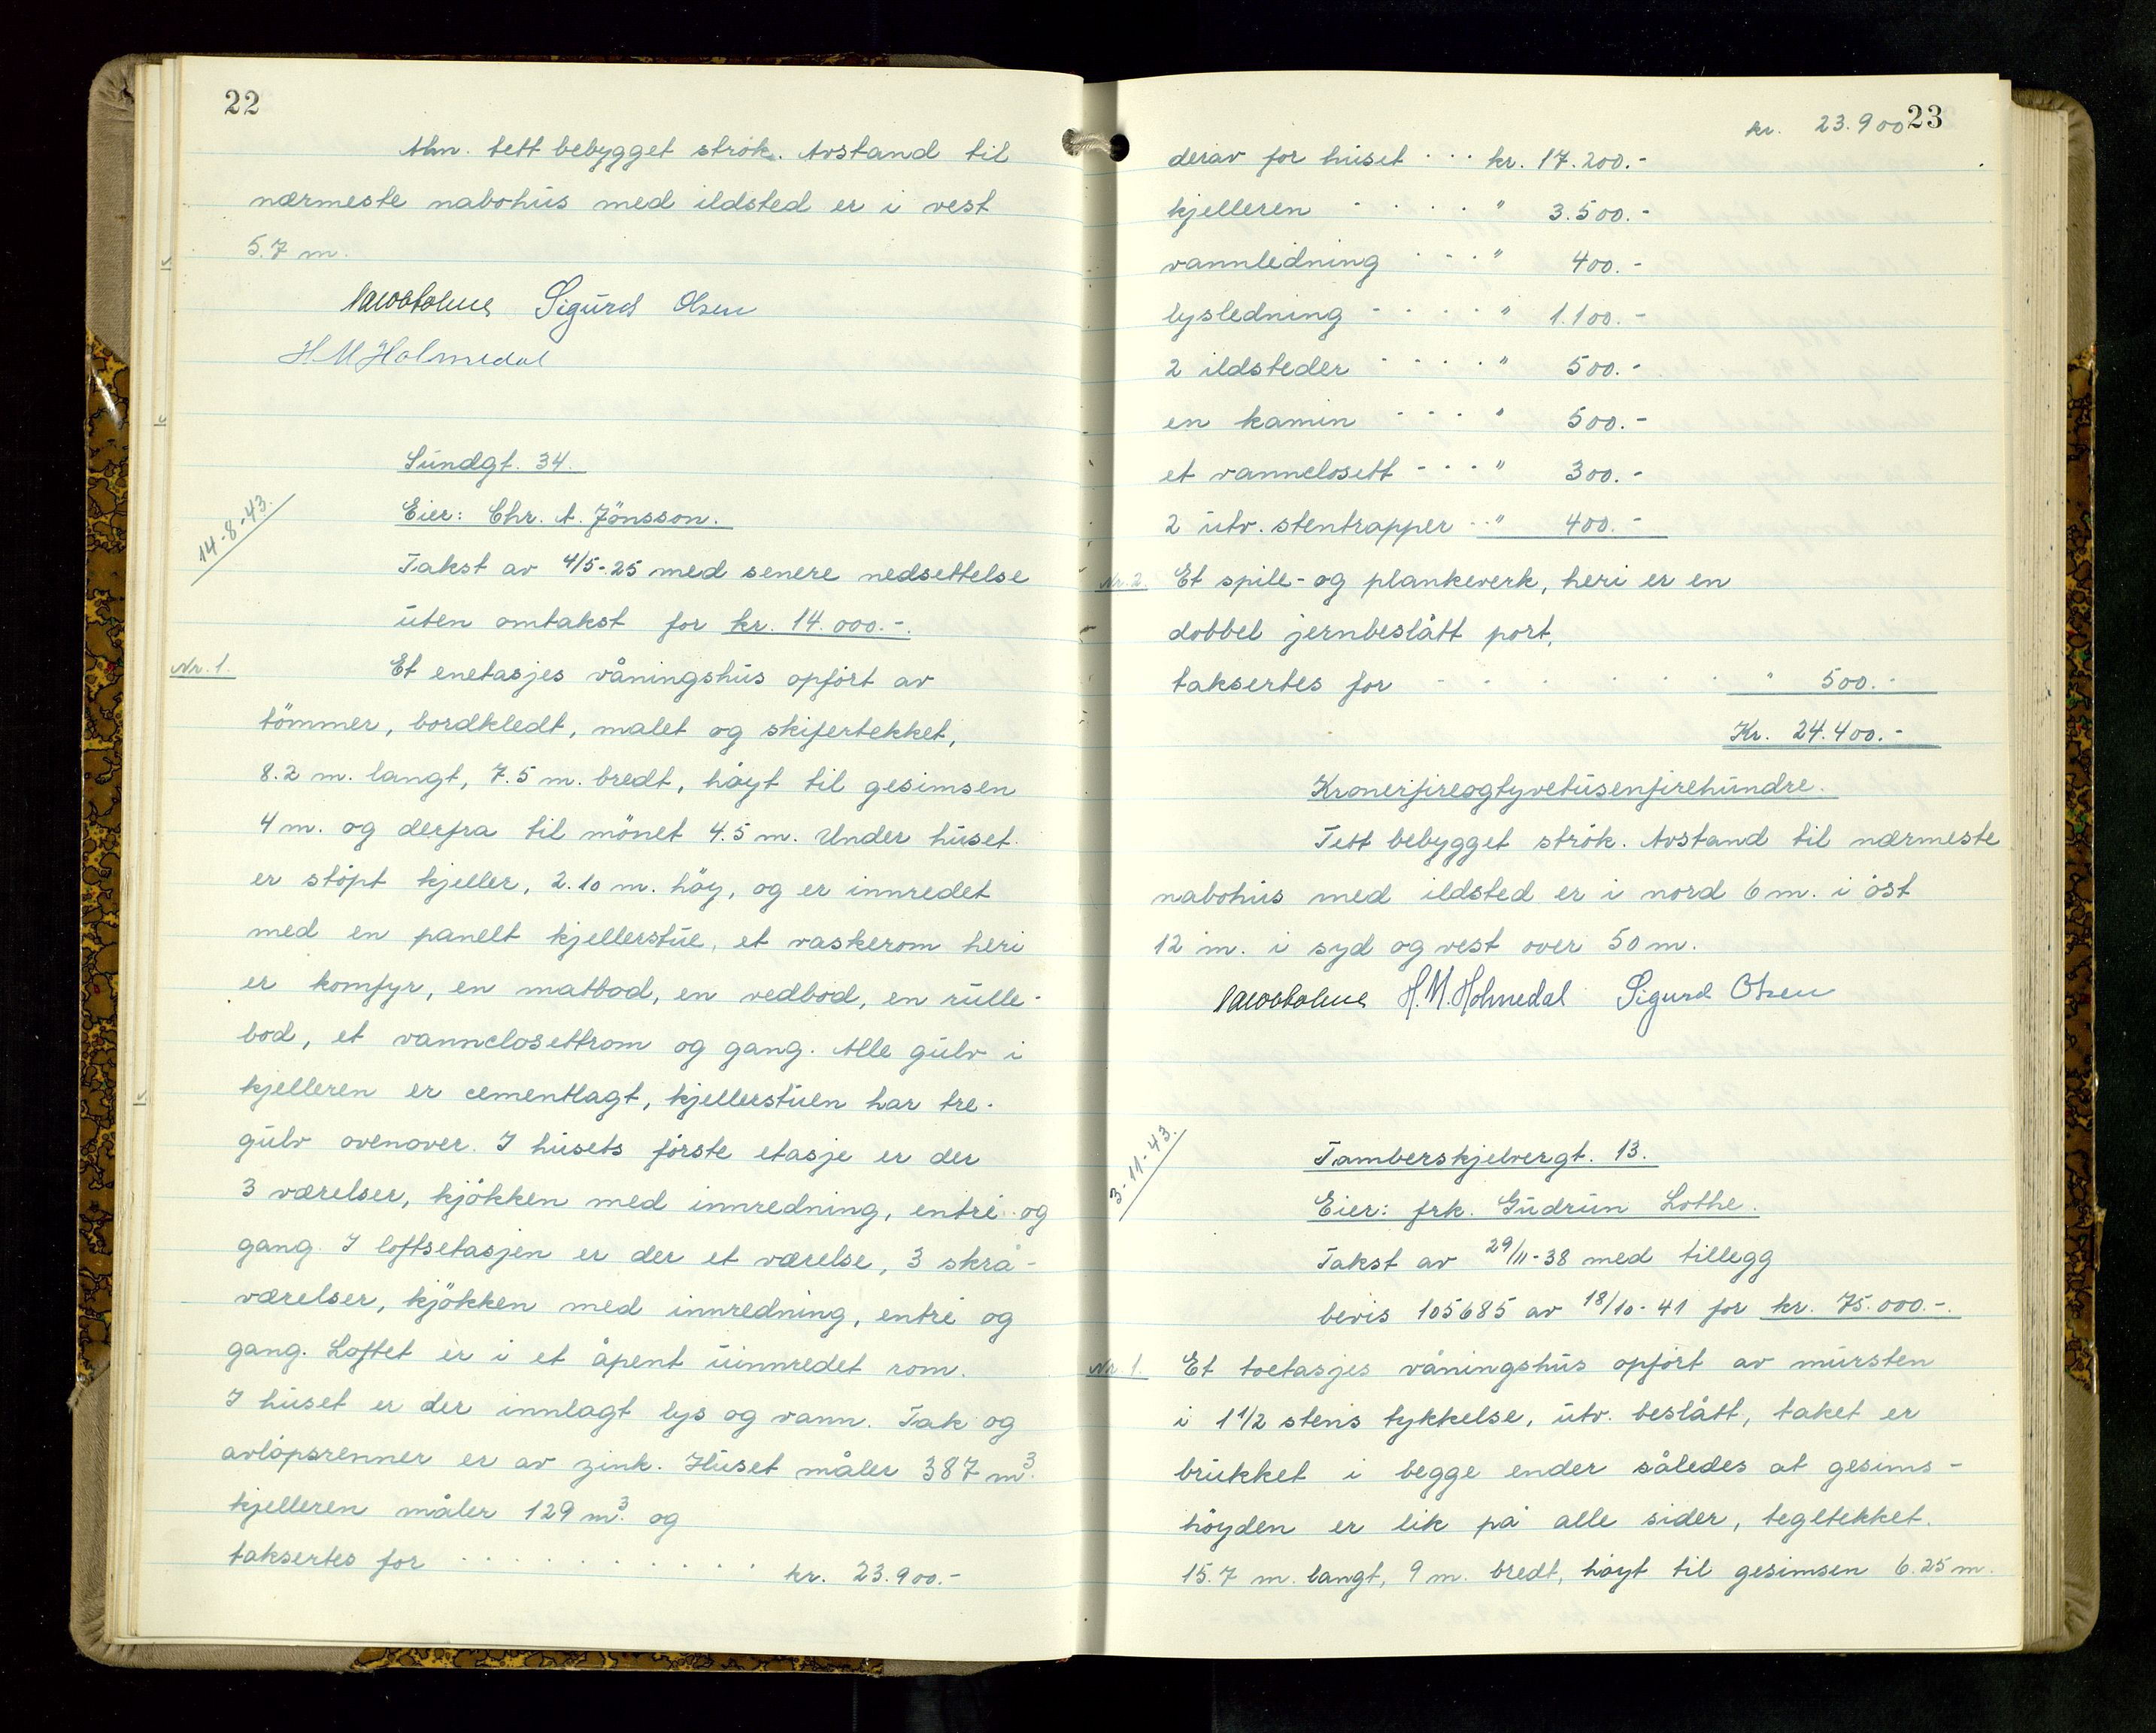 22
Alm. tett bebygget strøk. Avstand til
nærmeste nabohus med ildsted er i vest
5.7 m.
Sigurd Olsen
H. M Holmedal
Sundgt. 34.
14-8-43.
Eier: Chr. A. Jönsson.
Takst av 4/5-25 med senere nedsettelse
uten omtakst for kr. 14.000.-.
Nr. 1.
Et enetasjes våningshus opført av
tømmer, bordkledt, malet og skifertekket,
8.2 m. langt, 7.5 m. bredt, høyt til gesimsen
4 m. og derfra til mønet 4.5 m. Under huset
er støpt kjeller, 2.10 m. høy, og er innredet
med en panelt kjellerstue, et vaskerom heri
er komfyr, en matbod, en vedbod, en rulle-
bod, et vannclosettrom og gang. Alle gulv i
kjelleren er cementlagt, kjellerstuen har tre-
gulv ovenover. I husets første etasje er der
3 værelser, kjøkken med innredning, entré og
gang. I loftsetasjen er der et værelse, 3 skrå-
værelser, kjøkken med innredning, entré og
gang. Loftet er i et åpent uinnredet rom.
I huset er der innlagt lys og vann. Tak og
avløpsrenner er av zink. Huset måler 387 m³.
kjelleren måler 129 m³. og
taksertes for . . . . . . . . . . . kr. 23.900.-
23
kr. 23.900
derav for huset . . . kr. 17.200.-
kjelleren - . . . . " 3.500.-
vannledning . . . " 400.-
lysledning - . . . . " 1.100.-
2 ildsteder - . . . . " 500.-
en kamin - - . . " 500.-
et vannclosett - - . . " 300.-
2 utv. stentrapper . . " 400.-
Nr. 2. Et spile- og plankeverk, heri er en
dobbel jernbeslått port,
taksertes for - - . . . . . " 500.-
Kr. 24.400.-
Kronerfireogtyvetusenfirehundre.
Tett bebygget strøk. Avstand til nærmeste
nabohus med ildsted er i nord 6 m. i øst
12 m. i syd og vest over 50 m.
H. M. Holmedal Sigurd Olsen
3-11-43.
Tamberskjelvergt. 13.
Eier: frk. Gudrun Lothe.
Takst av 29/11-38 med tillegg
bevis 105685 av 18/10-41 for kr. 75.000.-.
Nr. 1. Et toetasjes våningshus opført av mursten
i 1 1/2 stens tykkelse, utv. beslått, taket er
brukket i begge ender således at gesims-
høyden er lik på alle sider, tegltekket.
15.7 m. langt, 9 m. bredt, høyt til gesimsen 6.25 m.